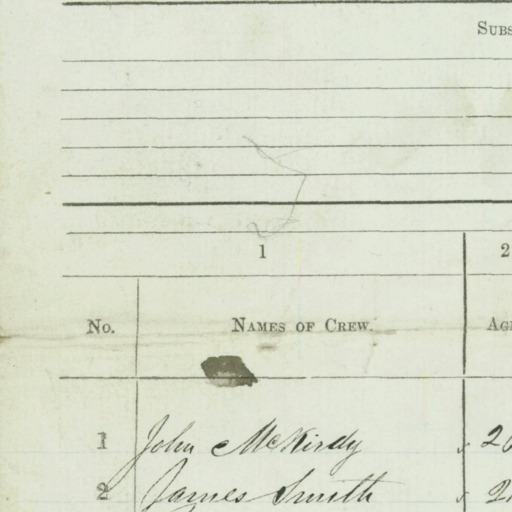 1
No. NAMES OF CREW.
1 John McKirdy
2 James Smith